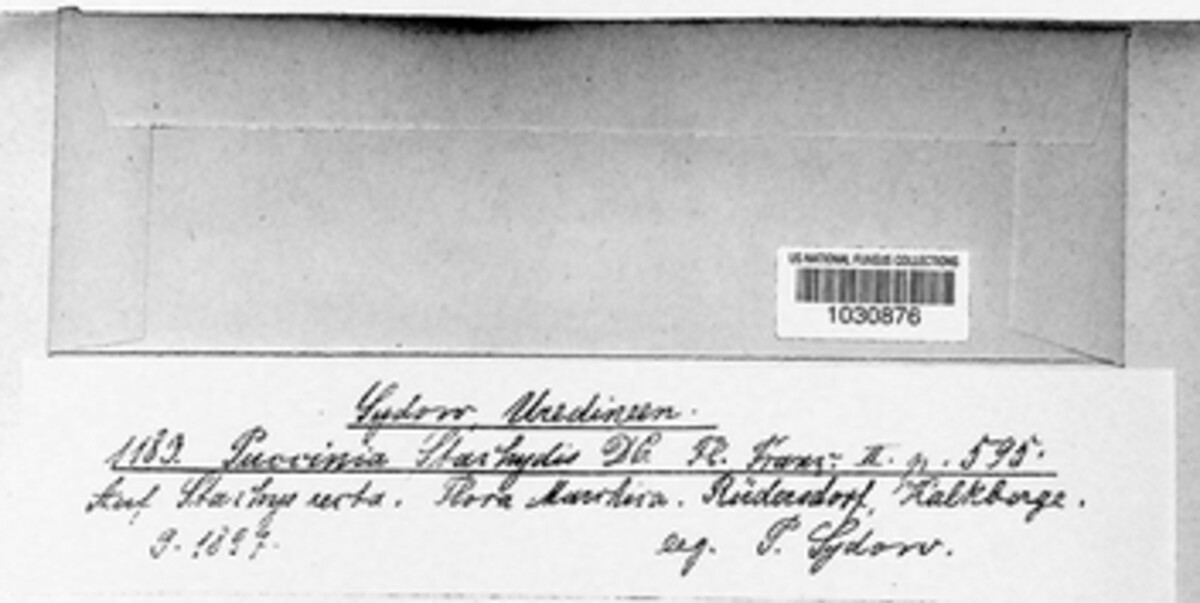 US NATIONAL FUNGUS COLLECTIONS
1030876
Sydow, Uredineen.
1183. Puccinia Stachydis DC. Fl. Franç. II. p. 595.
Auf Stachys recta. Flora Marchica. Rüdersdorf, Kalkberge.
9. 1897. leg. P. Sydow.